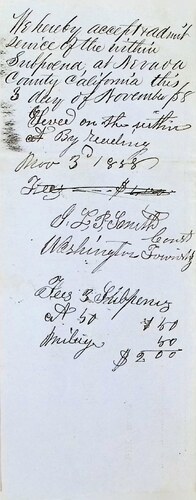 We hereby accept & admit
service of the within
Subpoena at Nevada
County California this
3 day of November 58
Served on the within
By reading
Nov 3d 1858
Fees $
J. L. P. Smith
Const
Washington Township
Fees 3 Subpenas
at 50 $1 50
Mileage 50
$ 2 00